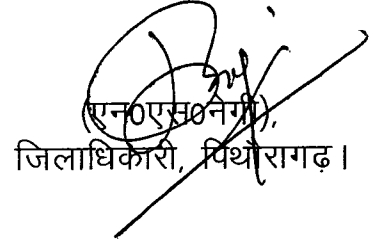 (एन0एस0नेगी),
जिलाधिकारी, पिथौरागढ़।